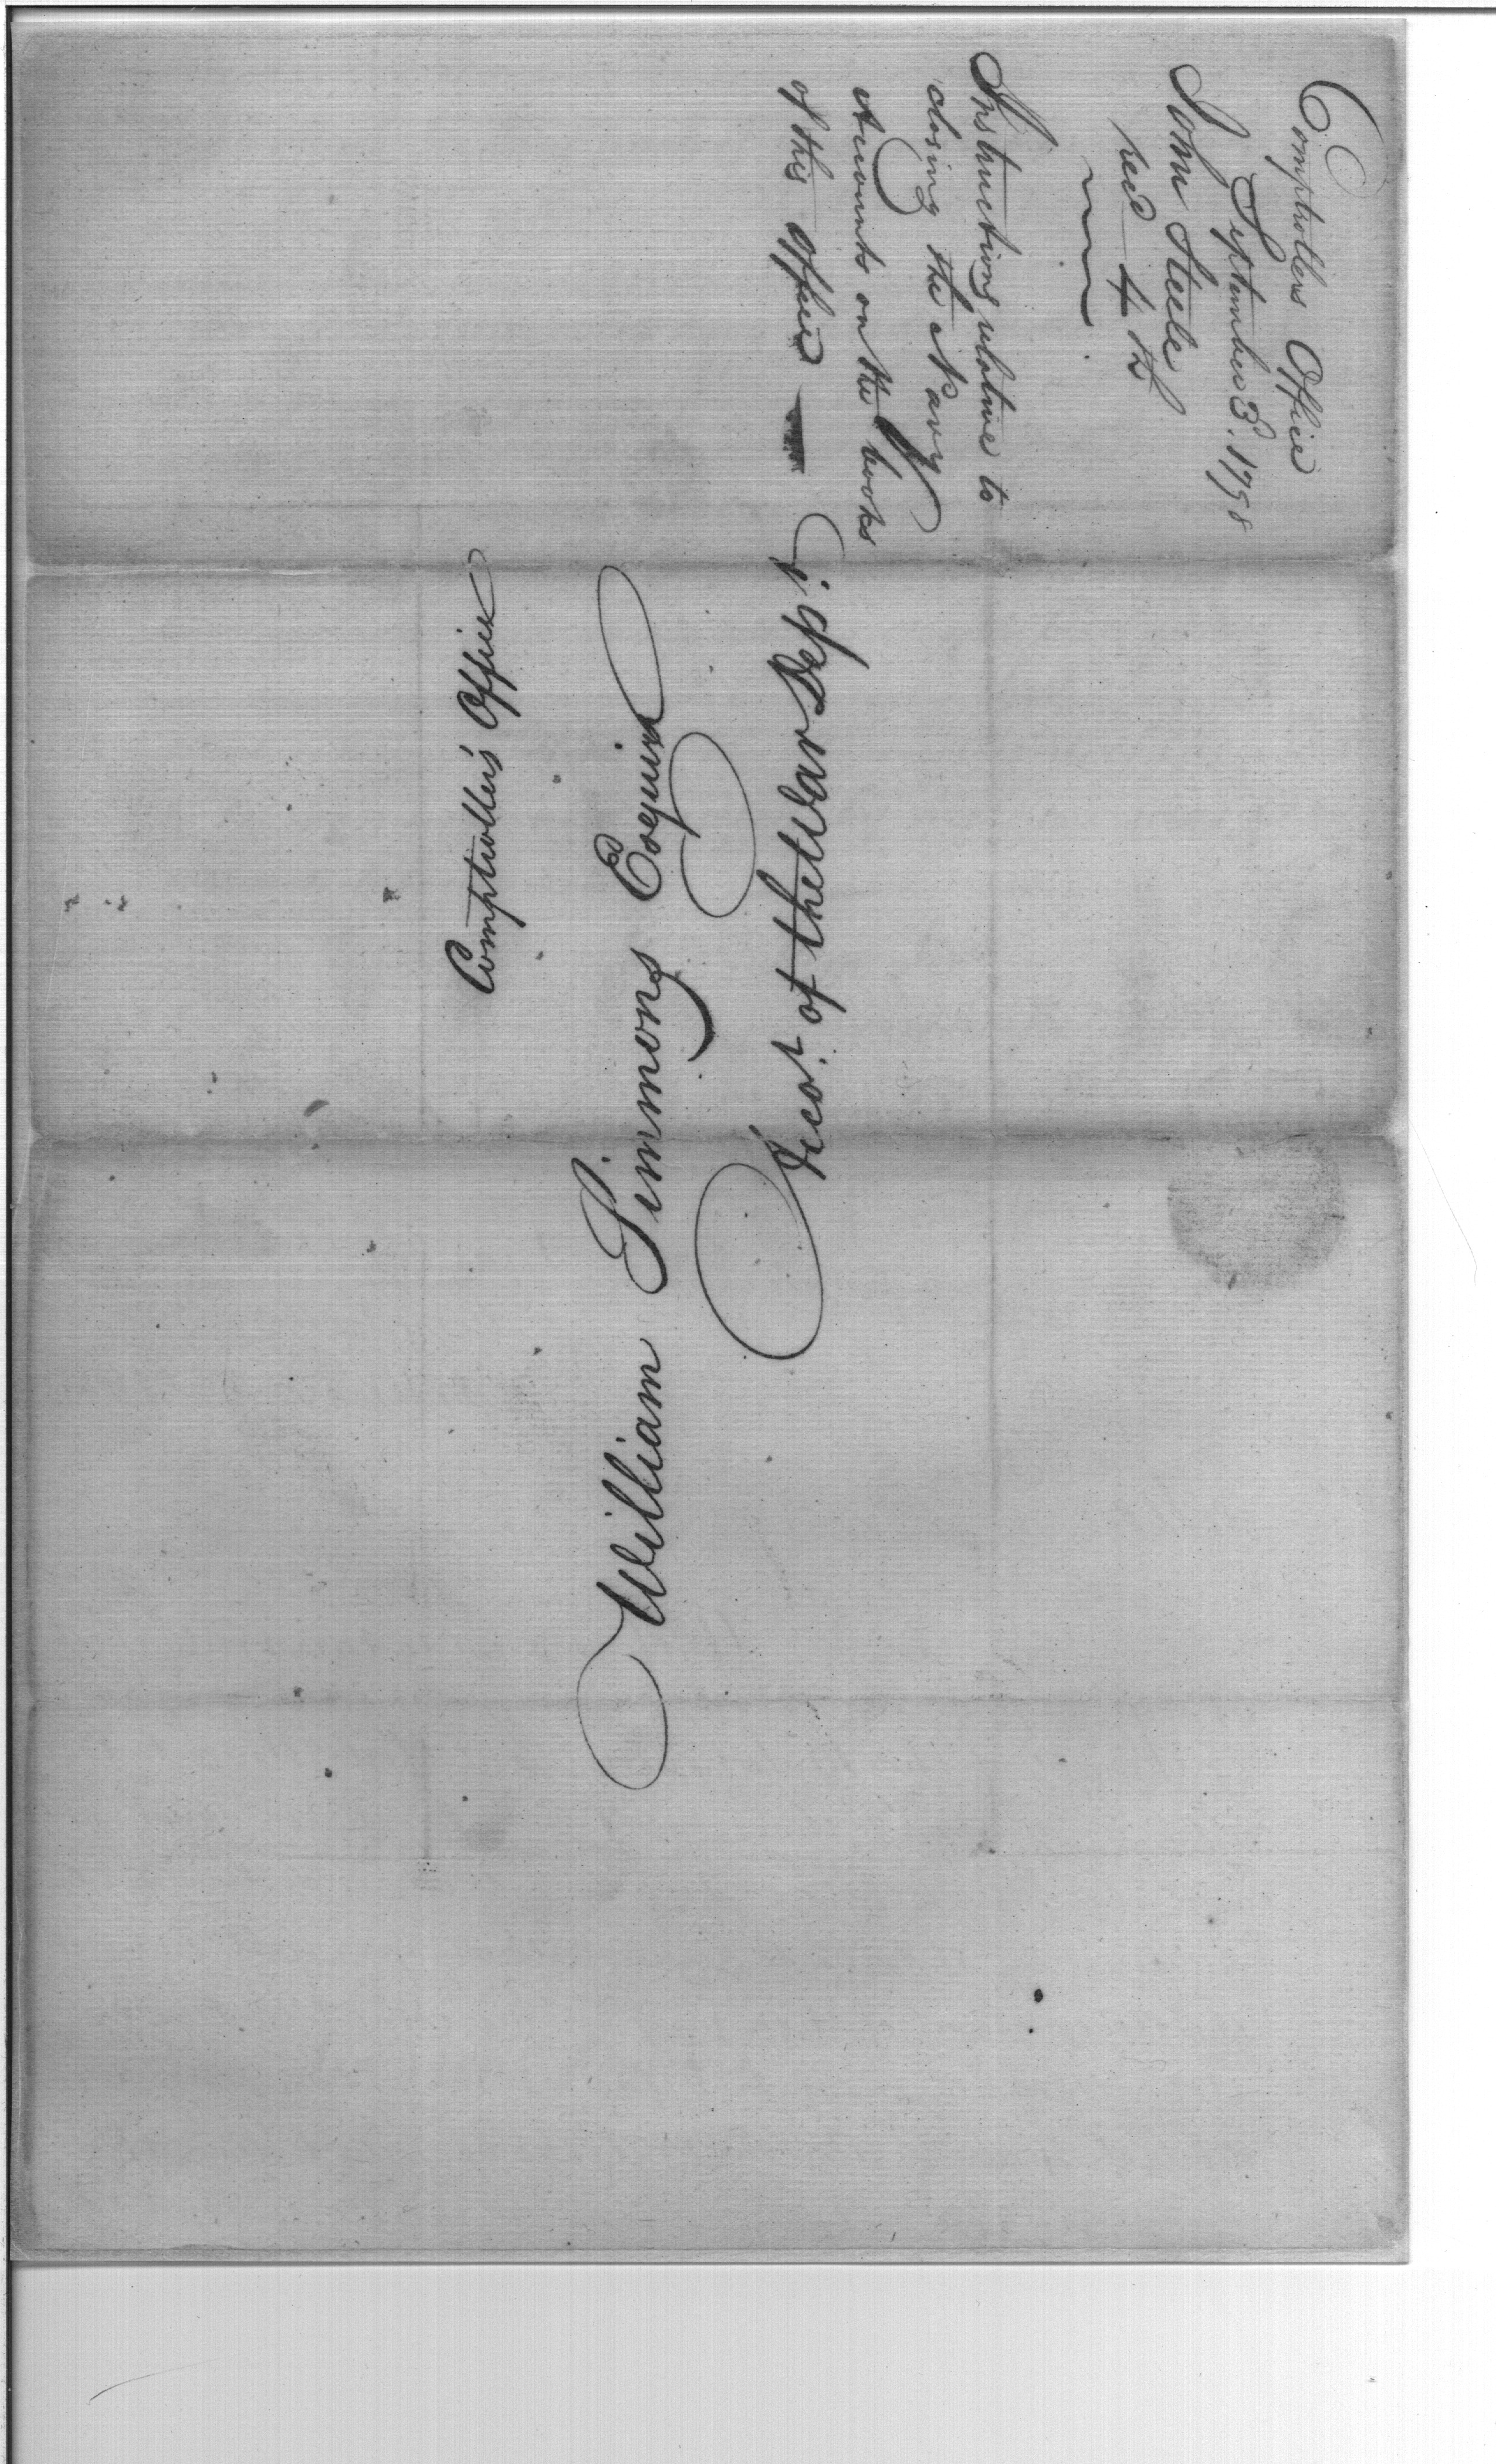 Comptrollers Office
September 3. 1798
John Steele
recd 4th
Instructions relative to
closing the Navy
Accounts on the books
of this Office —
Comptroller's Office
William Simmons Esquire
Acco.t of the War Dep.t